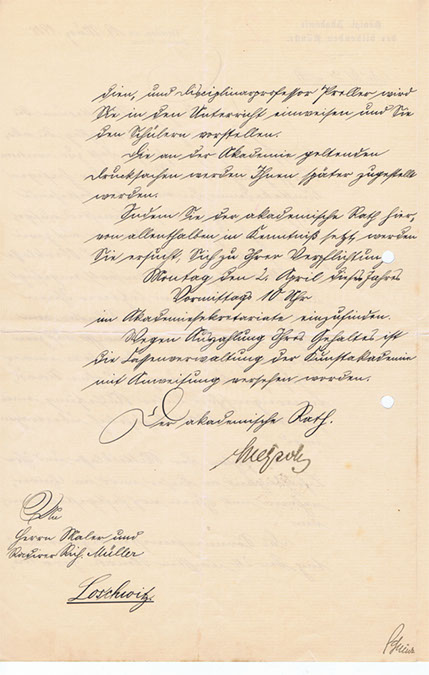 dien, und Disciplinarprofessor Preller wird
Sie in den Unterricht einweisen und Sie
den Schülern vorstellen.
Die an der Akademie geltenden
Drucksachen werden Ihnen später zugestellt
werden.
Indem Sie der akademische Rath hier,
von allenthalben in Kenntniß setzt, werden
Sie ersucht, Sich zu Ihrer Verpflichtung
Montag den 2. April dieses Jahres
Vormittags 10 Uhr
im Akademiesekretariate einzufinden.
Wegen Auszahlung Ihres Gehaltes ist
die Cassenverwaltung der Kunstakademie
mit Anweisung versehen worden.
Der akademische Rath.
An
Herrn Maler und
Radirer Rich. Müller
Loschwitz.